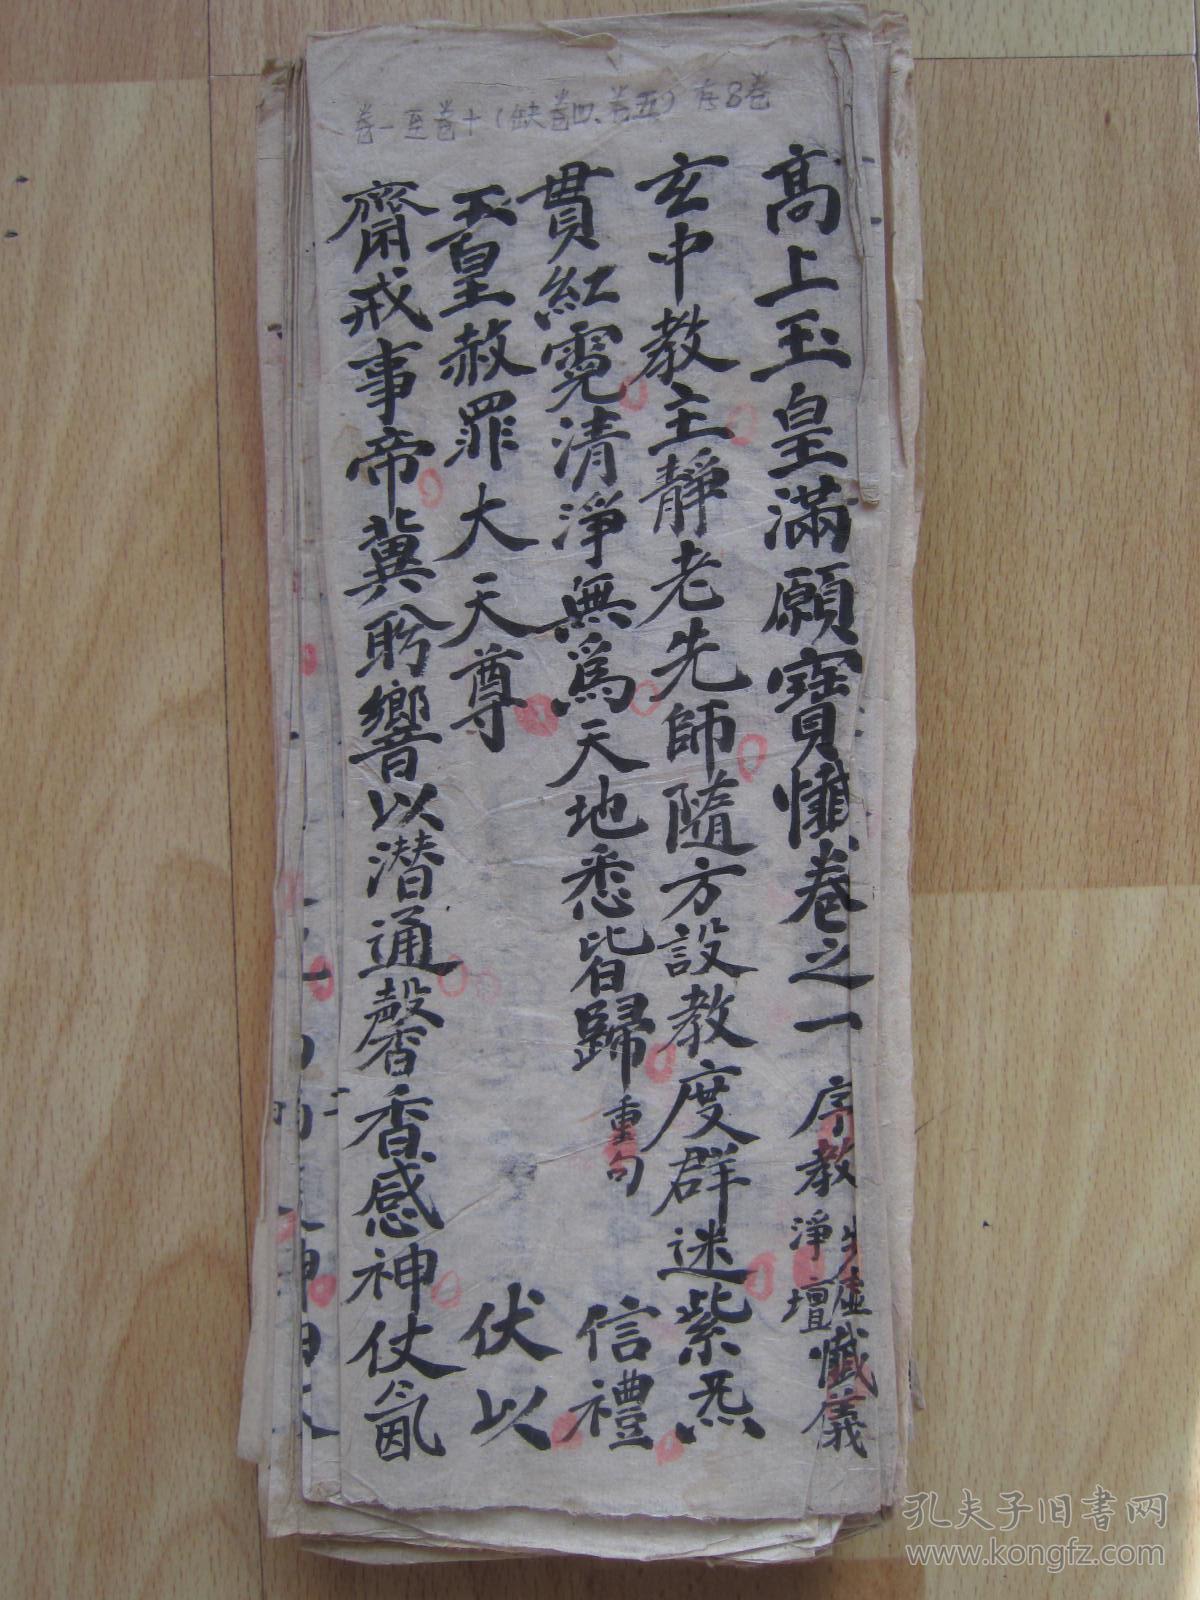 卷一至卷十(缺卷四、卷五)存8卷
高上玉皇滿願寶懺卷之一 序教 步虛 淨壇 懺儀
玄中教主靜老先師隨方設教度群迷紫炁
貫紅霓清淨無為天地悉皆歸 重句 信禮
玉皇赦罪大天尊 伏以
齋戒事帝冀盻響以潜通馨香感神仗氤
孔夫子旧书网
www.kongfz.com